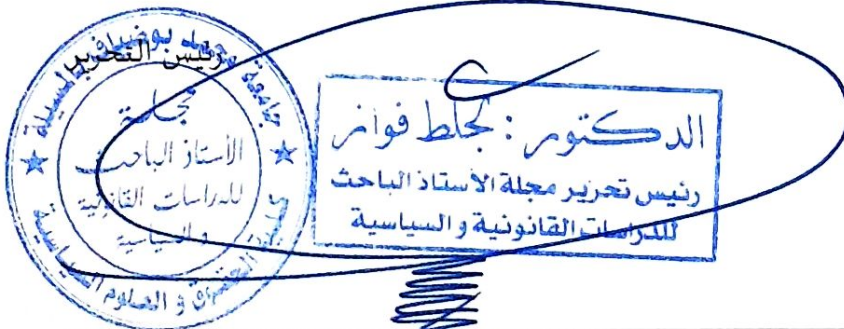 رئيس التحرير
جامعة محمد بوضياف بالمسيلة
مجلة
الأستاذ الباحث
للدراسات القانونية
و السياسية
كلية الحقوق و العلوم السياسية
الدكتور : لجلط فواز
رئيس تحرير مجلة الأستاذ الباحث
للدراسات القانونية و السياسية